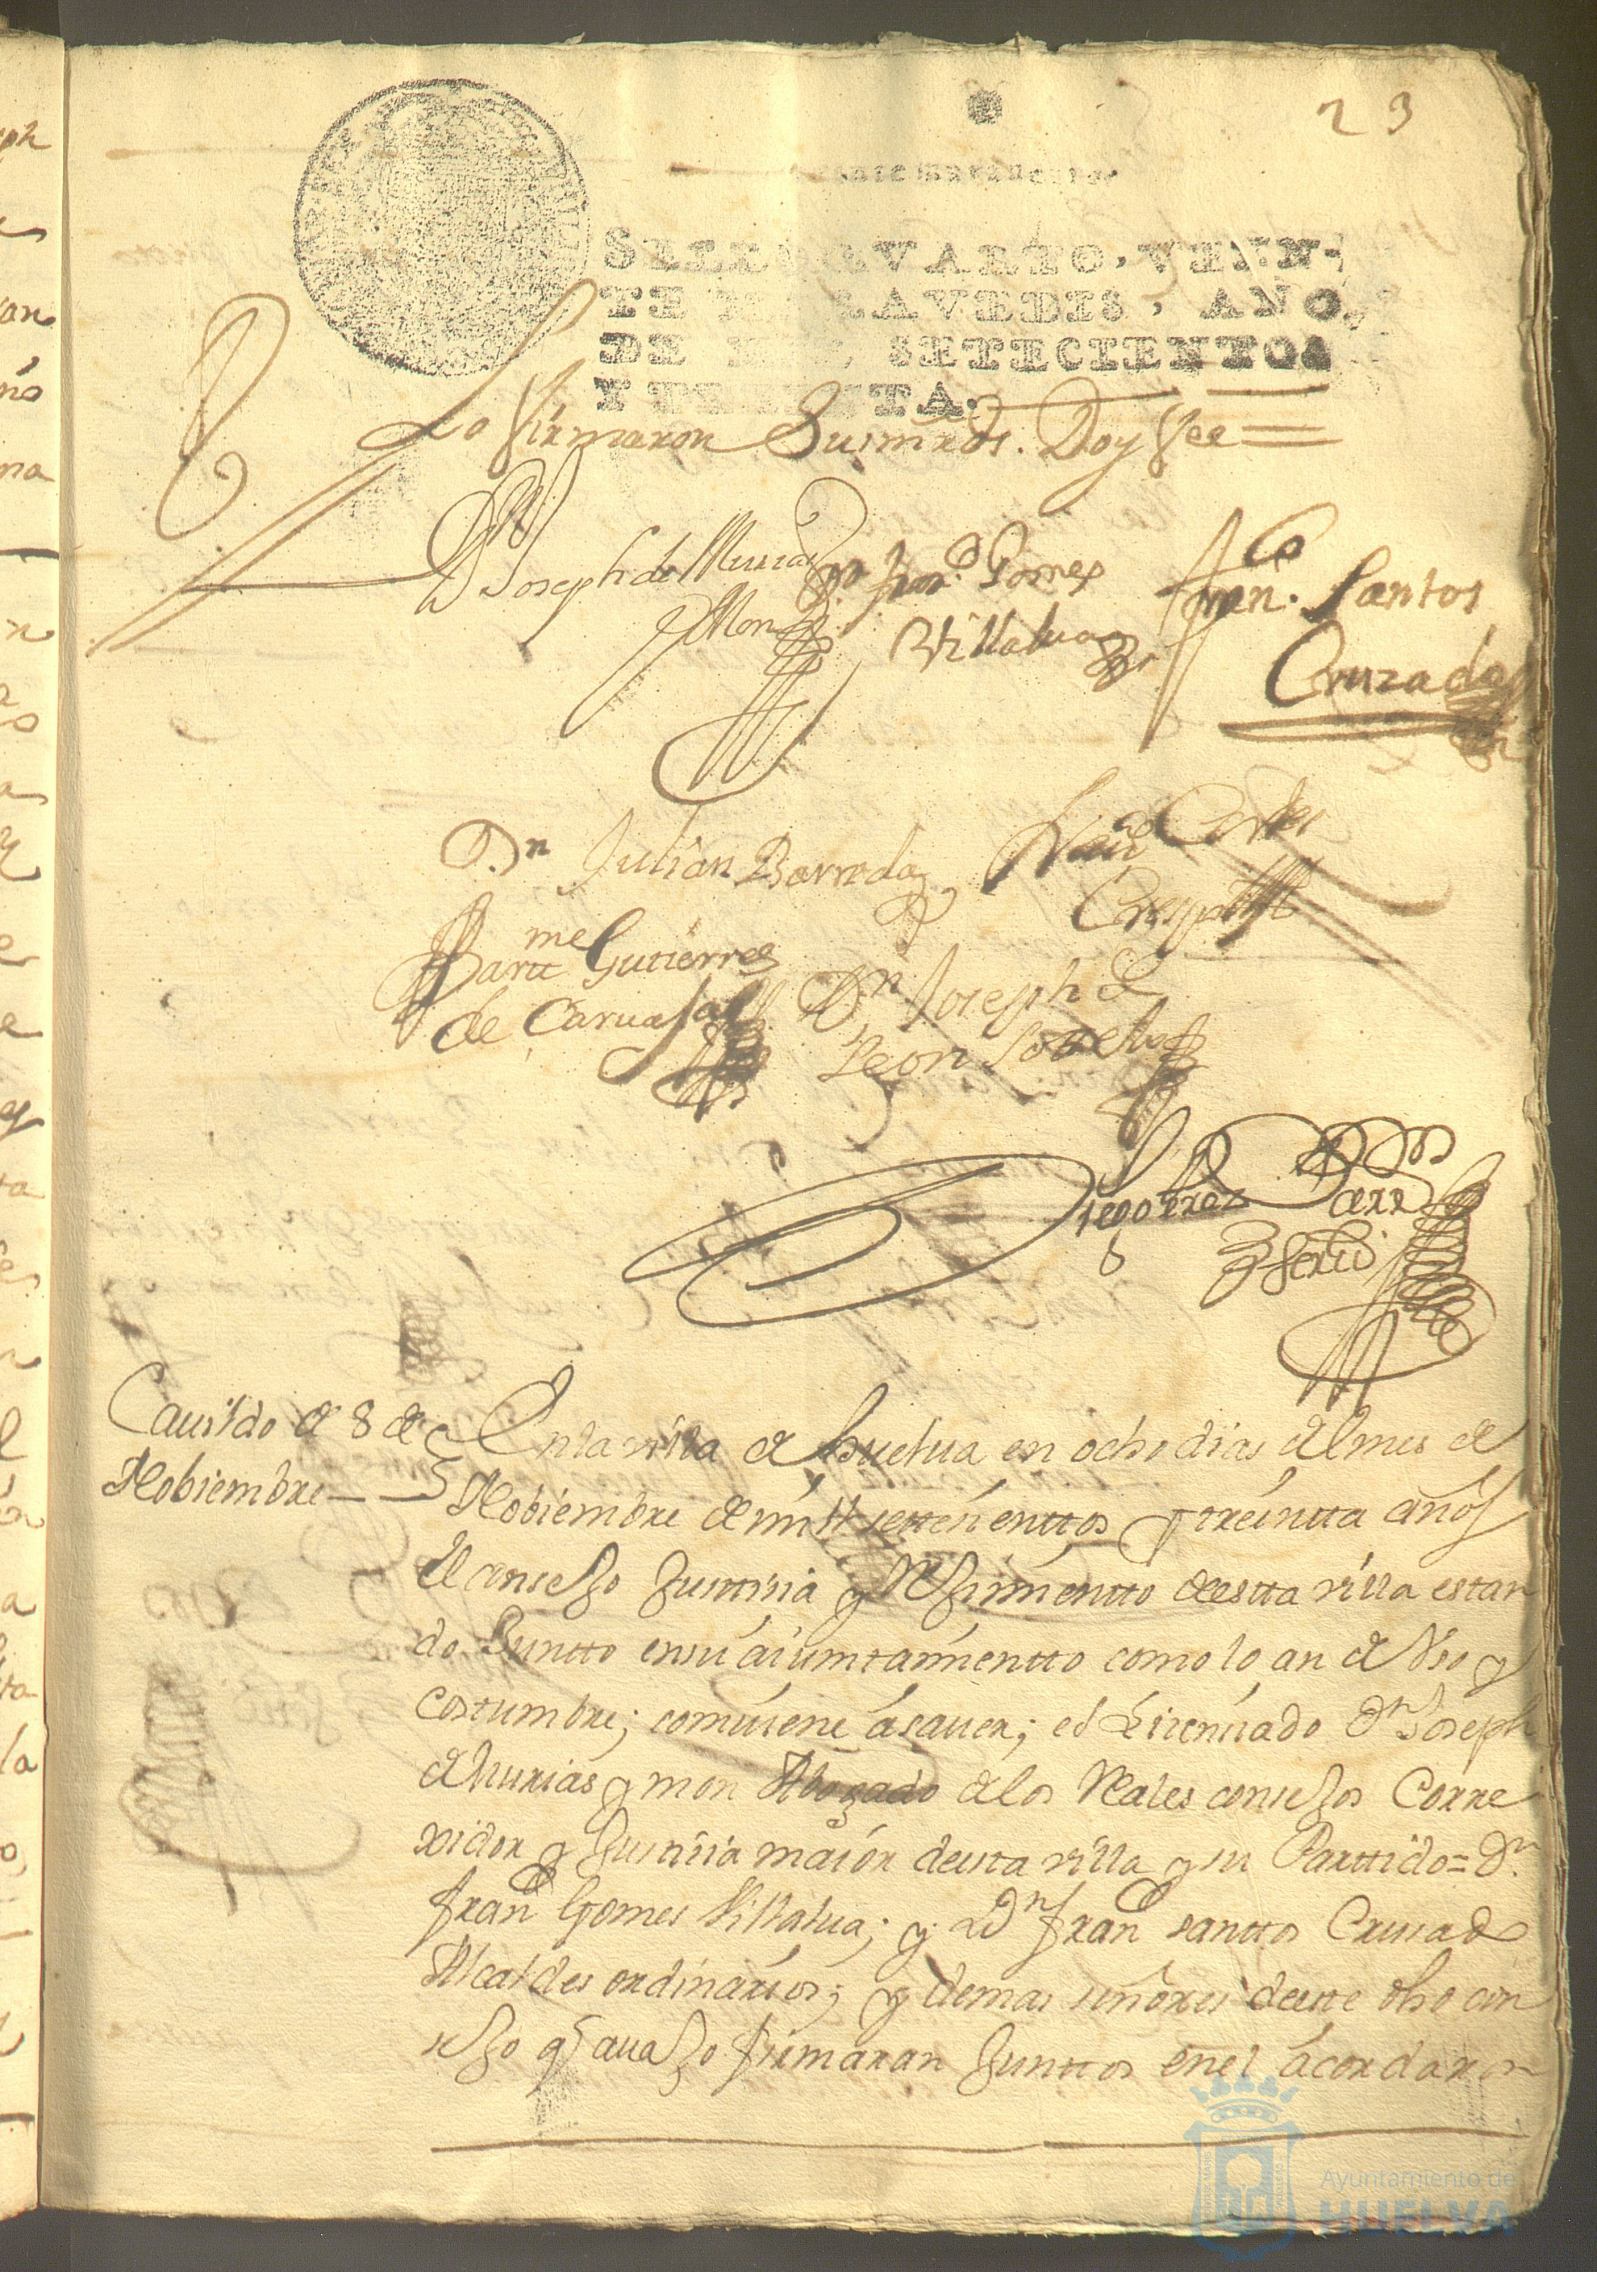 23
SELLO QVARTO, VEIN-
TE MARAVEDIS, AÑO
DE MIL SETECIENTOS
Y TREINTA.
Lo firmaron Susmrds. Doy fee
Dn Joseph de Murias
y Mon
Dn Franco Gomes
Villalua
Franco Santos
Cruzado
Dn Julian Barreda
Cortes
Barme Gutierres
de Caruajal
Dn Joseph de
Leon
Diego Perez
Cauildo de 8 de
Nobiembre
En la villa de Huelua en ocho dias del mes de
Nobiembre de mill settecienttos y treintta años
el consejo Justtisia y Rejimientto de estta villa estan
do Juntto en su aiuntamientto como lo an de vso y
costumbre; comuiene a sauer; el Lizenciado Dn Joseph
de Murias y mon Abogado de los Reales consejos Corre
xidor y Justticia maior de esta villa y su Parttido = Dn
Franco Gomes Villalua; y Dn Franco santtos Crusado
Alcaldes ordinarios; y demas señores de este dho con
sejo q auajo firmaran Junttos en el acordaron
Ayuntamiento de
HUELVA